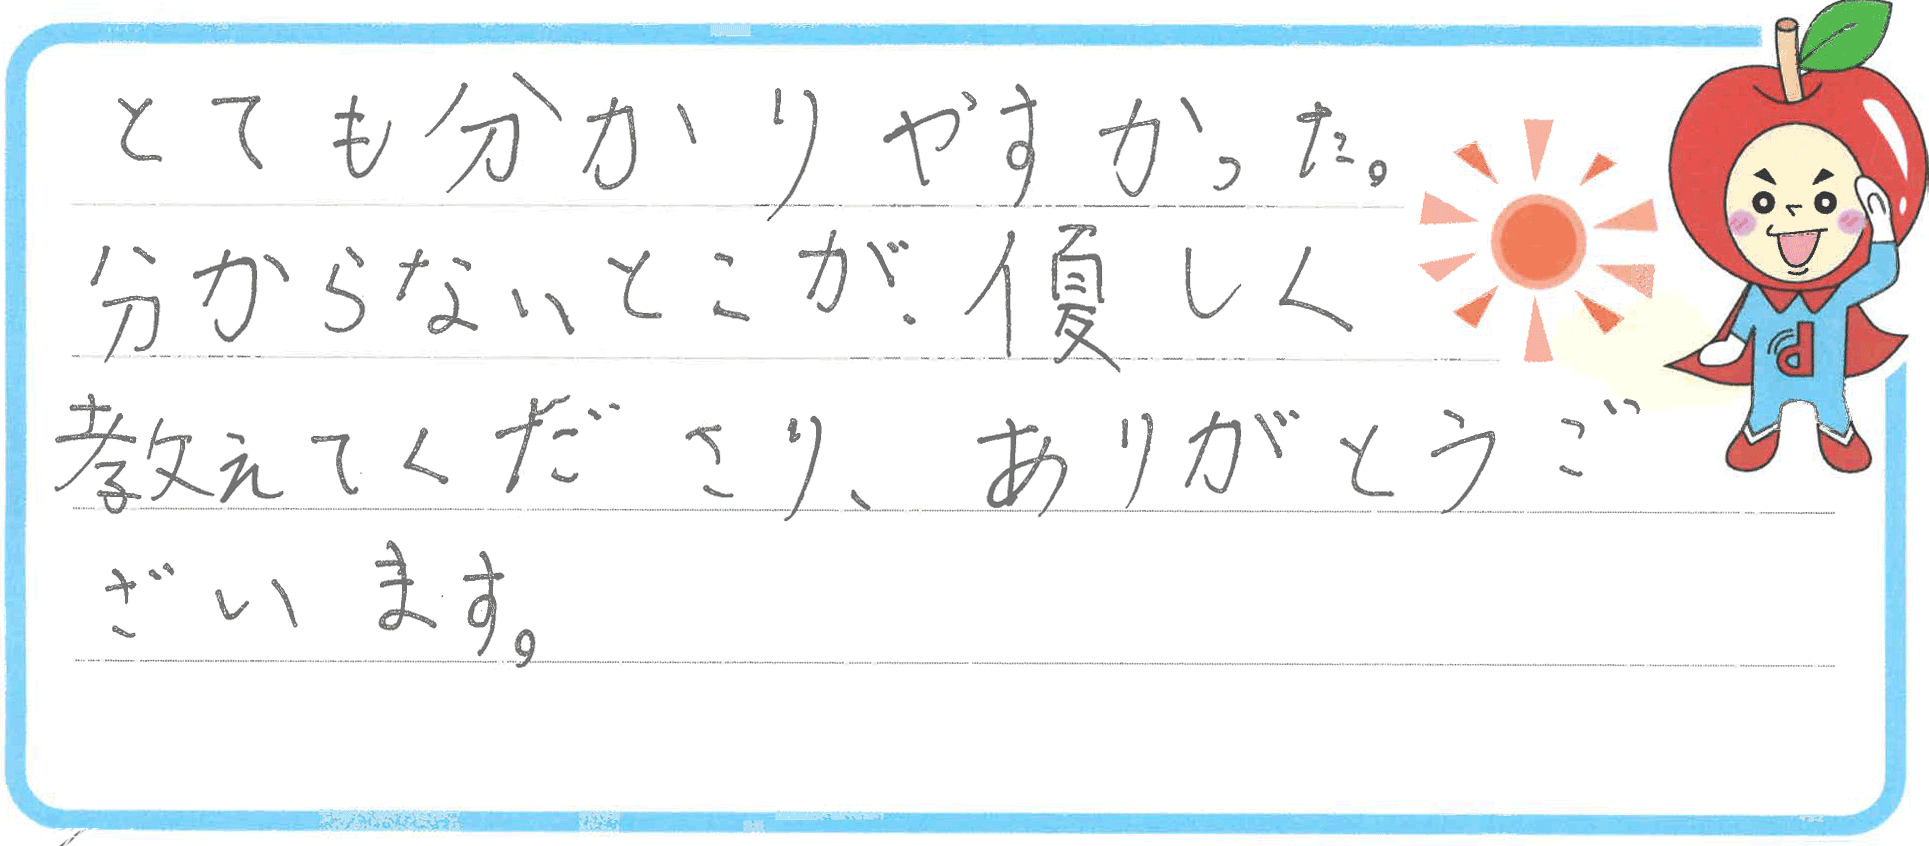 とても分かりやすかった。
分からないとこが、優しく
教えてくださり、ありがとうご
ざいます。
d